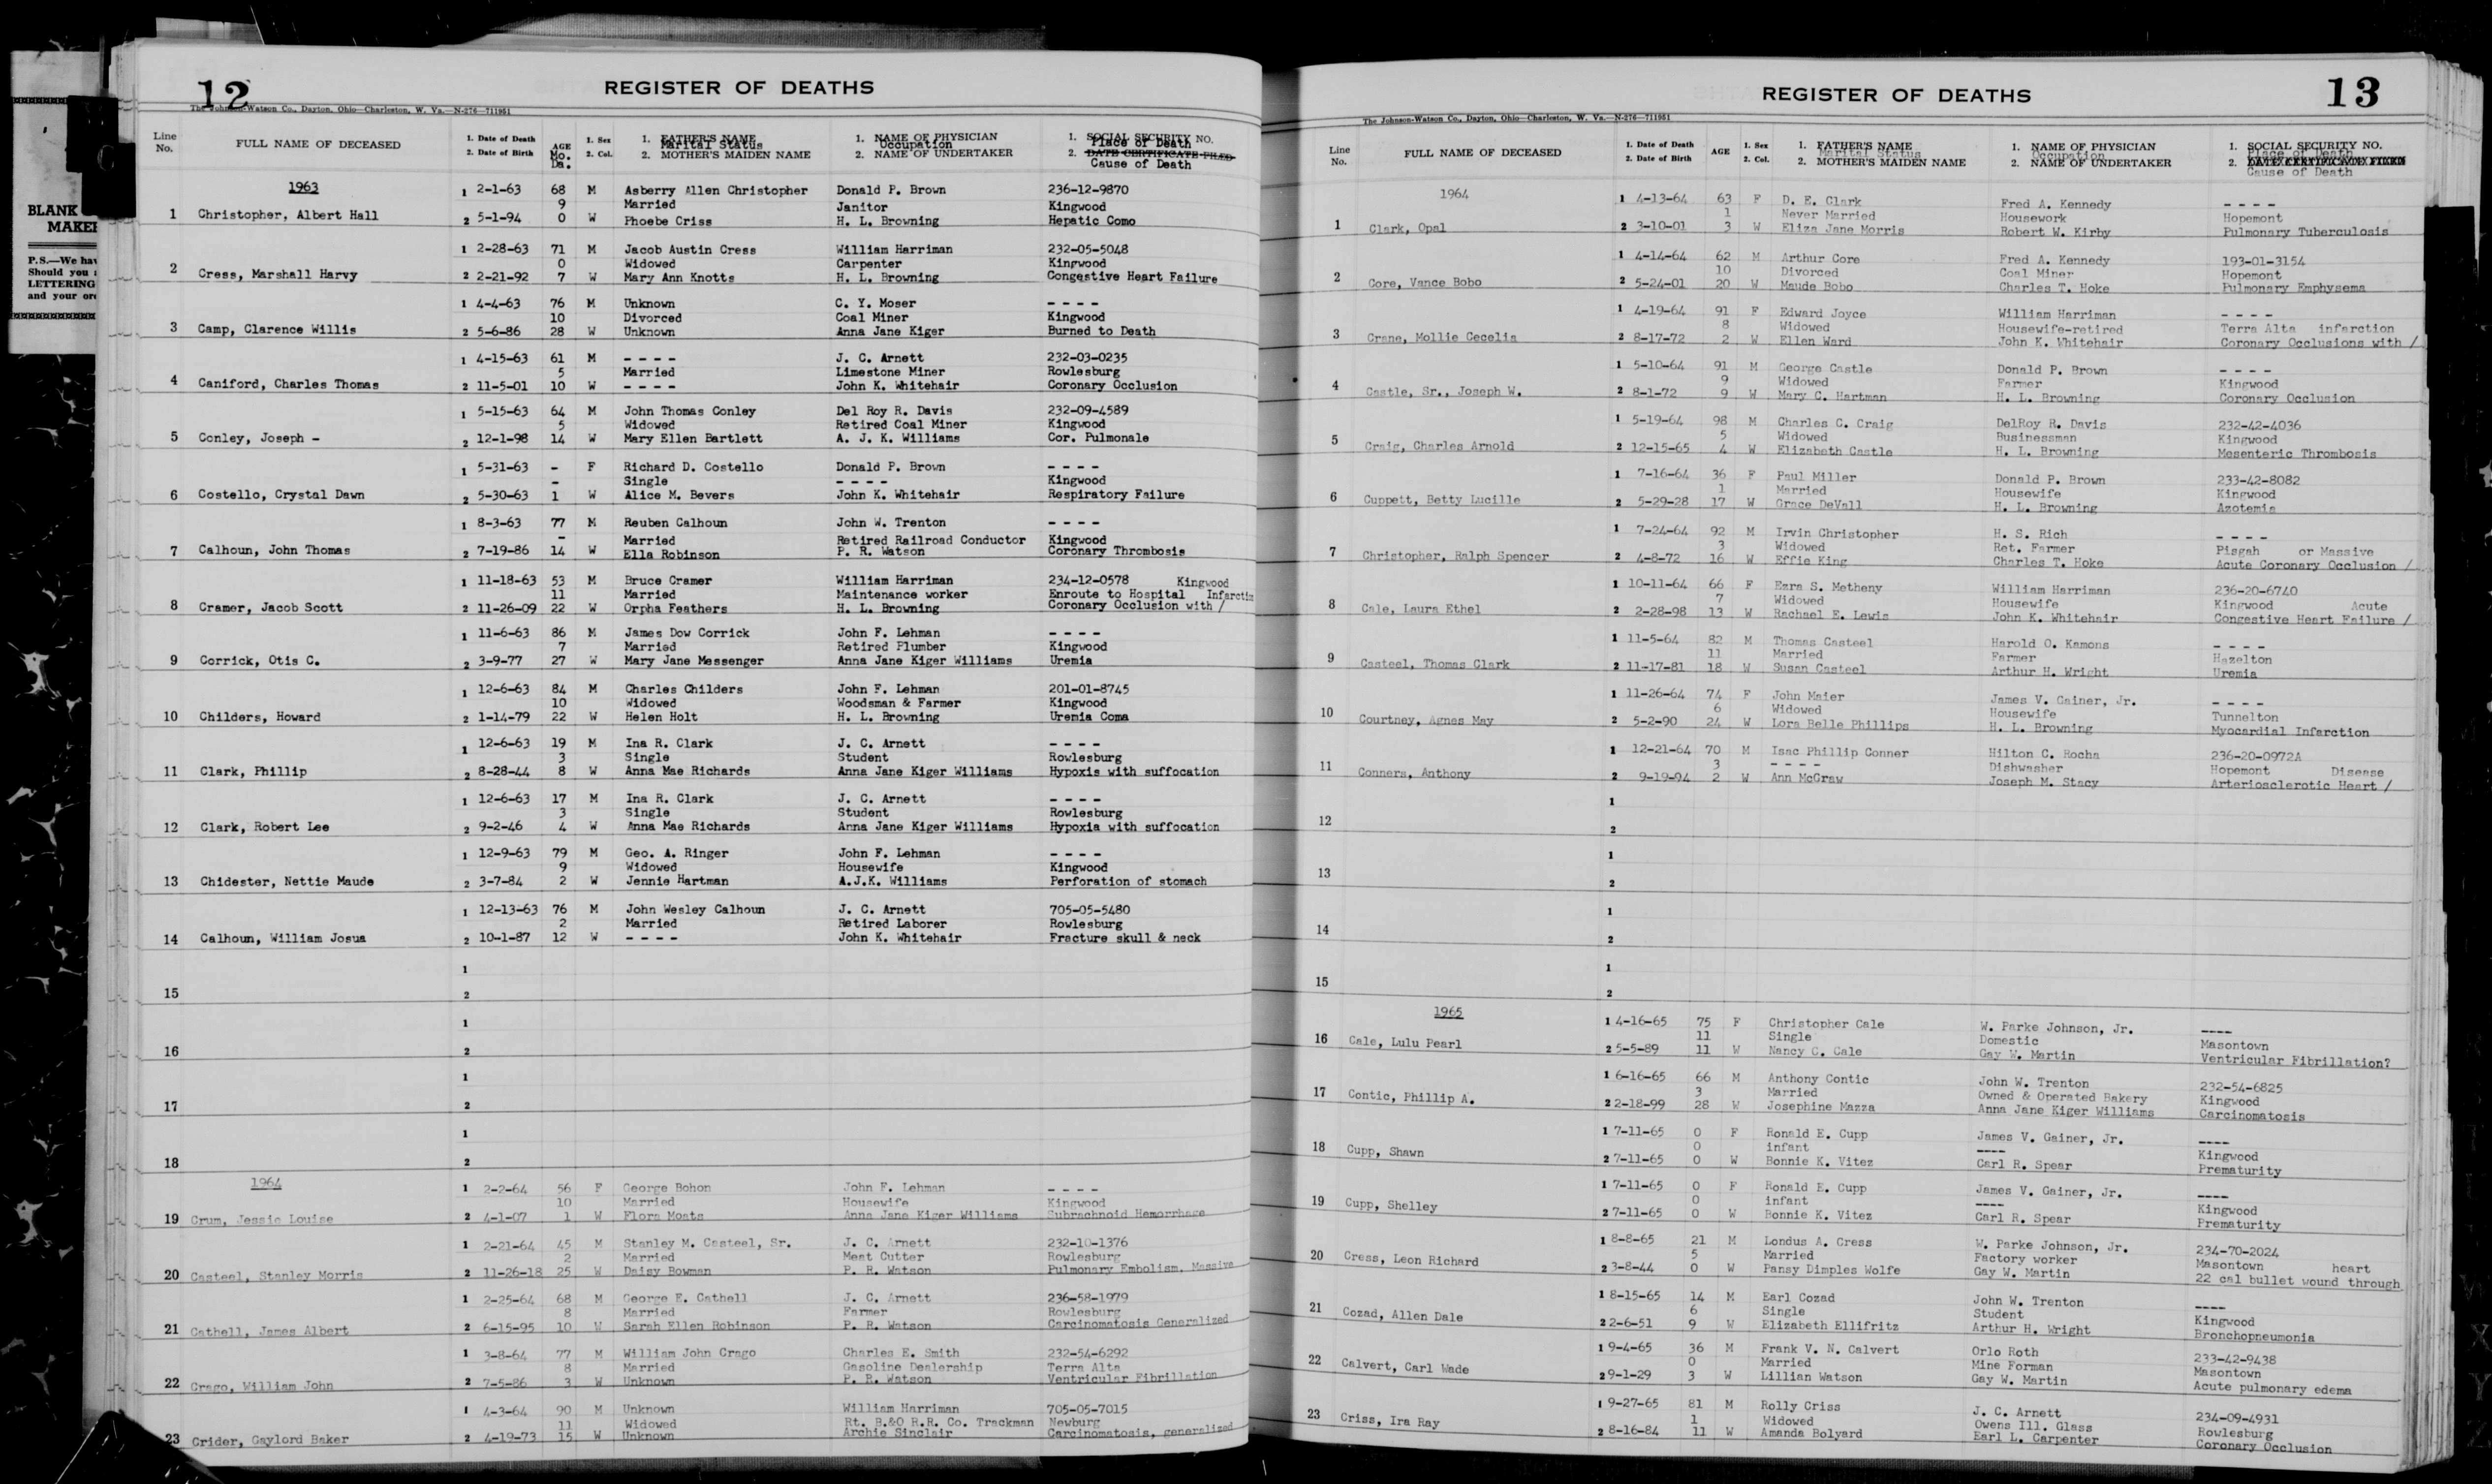 BLANK
MAKE
P.S.—We hav
Should you
LETTERING
and your ord
12
REGISTER OF DEATHS
The Johnson-Watson Co., Dayton, Ohio—Charleston, W. Va.—N-276—711951
Line No. FULL NAME OF DECEASED 1. Date of Death 2. Date of Birth AGE Mo. Da. 1. Sex 2. Col. 1. FATHER'S NAME Marital Status 2. MOTHER'S MAIDEN NAME 1. NAME OF PHYSICIAN Occupation 2. NAME OF UNDERTAKER 1. SOCIAL SECURITY NO. Place of Death 2. DATE CERTIFICATE FILED Cause of Death
1963
1 2-1-63 68 M Asberry Allen Christopher Donald P. Brown 236-12-9870
9 Married Janitor Kingwood
1 Christopher, Albert Hall 2 5-1-94 0 W Phoebe Criss H. L. Browning Hepatic Como
1 2-28-63 71 M Jacob Austin Cress William Harriman 232-05-5048
0 Widowed Carpenter Kingwood
2 Cress, Marshall Harvy 2 2-21-92 7 W Mary Ann Knotts H. L. Browning Congestive Heart Failure
1 4-4-63 76 M Unknown C. Y. Moser - - - -
10 Divorced Coal Miner Kingwood
3 Camp, Clarence Willis 2 5-6-86 28 W Unknown Anna Jane Kiger Burned to Death
1 4-15-63 61 M - - - - J. C. Arnett 232-03-0235
5 Married Limestone Miner Rowlesburg
4 Caniford, Charles Thomas 2 11-5-01 10 W - - - - John K. Whitehair Coronary Occlusion
1 5-15-63 64 M John Thomas Conley Del Roy R. Davis 232-09-4589
5 Widowed Retired Coal Miner Kingwood
5 Conley, Joseph - 2 12-1-98 14 W Mary Ellen Bartlett A. J. K. Williams Cor. Pulmonale
1 5-31-63 - F Richard D. Costello Donald P. Brown - - - -
- Single - - - - Kingwood
6 Costello, Crystal Dawn 2 5-30-63 1 W Alice M. Bevers John K. Whitehair Respiratory Failure
1 8-3-63 77 M Reuben Calhoun John W. Trenton - - - -
- Married Retired Railroad Conductor Kingwood
7 Calhoun, John Thomas 2 7-19-86 14 W Ella Robinson P. R. Watson Coronary Thrombosis
1 11-18-63 53 M Bruce Cramer William Harriman 234-12-0578 Kingwood
11 Married Maintenance worker Enroute to Hospital Infarctio
8 Cramer, Jacob Scott 2 11-26-09 22 W Orpha Feathers H. L. Browning Coronary Occlusion with /
1 11-6-63 86 M James Dow Corrick John F. Lehman - - - -
7 Married Retired Plumber Kingwood
9 Corrick, Otis C. 2 3-9-77 27 W Mary Jane Messenger Anna Jane Kiger Williams Uremia
1 12-6-63 84 M Charles Childers John F. Lehman 201-01-8745
10 Widowed Woodsman & Farmer Kingwood
10 Childers, Howard 2 1-14-79 22 W Helen Holt H. L. Browning Uremia Coma
1 12-6-63 19 M Ina R. Clark J. C. Arnett - - - -
3 Single Student Rowlesburg
11 Clark, Phillip 2 8-28-44 8 W Anna Mae Richards Anna Jane Kiger Williams Hypoxis with suffocation
1 12-6-63 17 M Ina R. Clark J. C. Arnett - - - -
3 Single Student Rowlesburg
12 Clark, Robert Lee 2 9-2-46 4 W Anna Mae Richards Anna Jane Kiger Williams Hypoxia with suffocation
1 12-9-63 79 M Geo. A. Ringer John F. Lehman - - - -
9 Widowed Housewife Kingwood
13 Chidester, Nettie Maude 2 3-7-84 2 W Jennie Hartman A.J.K. Williams Perforation of stomach
1 12-13-63 76 M John Wesley Calhoun J. C. Arnett 705-05-5480
2 Married Retired Laborer Rowlesburg
14 Calhoun, William Josua 2 10-1-87 12 W - - - - John K. Whitehair Fracture skull & neck
1
15 2
1
16 2
1
17 2
1
18 2
1964
1 2-2-64 56 F George Bohon John F. Lehman - - - -
10 Married Housewife Kingwood
19 Crum, Jessie Louise 2 4-1-07 1 W Flora Moats Anna Jane Kiger Williams Subrachnoid Hemorrhage
1 2-21-64 45 M Stanley M. Casteel, Sr. J. C. Arnett 232-10-1376
2 Married Meat Cutter Rowlesburg
20 Casteel, Stanley Morris 2 11-26-18 25 W Daisy Bowman P. R. Watson Pulmonary Embolism, Massive
1 2-25-64 68 M George E. Cathell J. C. Arnett 236-58-1979
8 Married Farmer Rowlesburg
21 Cathell, James Albert 2 6-15-95 10 W Sarah Ellen Robinson P. R. Watson Carcinomatosis Generalized
1 3-8-64 77 M William John Crago Charles E. Smith 232-54-6292
8 Married Gasoline Dealership Terra Alta
22 Crago, William John 2 7-5-86 3 W Unknown P. R. Watson Ventricular Fibrillation
1 4-3-64 90 M Unknown William Harriman 705-05-7015
11 Widowed Rt. B.&O R.R. Co. Trackman Newburg
23 Crider, Gaylord Baker 2 4-19-73 15 W Unknown Archie Sinclair Carcinomatosis, generalized
REGISTER OF DEATHS
13
The Johnson-Watson Co., Dayton, Ohio—Charleston, W. Va.—N-276—711951
Line No. FULL NAME OF DECEASED 1. Date of Death 2. Date of Birth AGE 1. Sex 2. Col. 1. FATHER'S NAME Marital Status 2. MOTHER'S MAIDEN NAME 1. NAME OF PHYSICIAN Occupation 2. NAME OF UNDERTAKER 1. SOCIAL SECURITY NO. Place of Death 2. DATE CERTIFICATE FILED Cause of Death
1964
1 4-13-64 63 F D. E. Clark Fred A. Kennedy - - - -
1 Never Married Housework Hopemont
1 Clark, Opal 2 3-10-01 3 W Eliza Jane Morris Robert W. Kirby Pulmonary Tuberculosis
1 4-14-64 62 M Arthur Core Fred A. Kennedy 193-01-3154
10 Divorced Coal Miner Hopemont
2 Core, Vance Bobo 2 5-24-01 20 W Maude Bobo Charles T. Hoke Pulmonary Emphysema
1 4-19-64 91 F Edward Joyce William Harriman - - - -
8 Widowed Housewife-retired Terra Alta infarction
3 Crane, Mollie Cecelia 2 8-17-72 2 W Ellen Ward John K. Whitehair Coronary Occlusions with /
1 5-10-64 91 M George Castle Donald P. Brown - - - -
9 Widowed Farmer Kingwood
4 Castle, Sr., Joseph W. 2 8-1-72 9 W Mary C. Hartman H. L. Browning Coronary Occlusion
1 5-19-64 98 M Charles C. Craig DelRoy R. Davis 232-42-4036
5 Widowed Businessman Kingwood
5 Craig, Charles Arnold 2 12-15-65 4 W Elizabeth Castle H. L. Browning Mesenteric Thrombosis
1 7-16-64 36 F Paul Miller Donald P. Brown 233-42-8082
1 Married Housewife Kingwood
6 Cuppett, Betty Lucille 2 5-29-28 17 W Grace DeVall H. L. Browning Azotemia
1 7-24-64 92 M Irvin Christopher H. S. Rich - - - -
3 Widowed Ret. Farmer Pisgah or Massive
7 Christopher, Ralph Spencer 2 4-8-72 16 W Effie King Charles T. Hoke Acute Coronary Occlusion /
1 10-11-64 66 F Ezra S. Metheny William Harriman 236-20-6740
7 Widowed Housewife Kingwood Acute
8 Cale, Laura Ethel 2 2-28-98 13 W Rachael E. Lewis John K. Whitehair Congestive Heart Failure /
1 11-5-64 82 M Thomas Casteel Harold O. Kamons - - - -
11 Married Farmer Hazelton
9 Casteel, Thomas Clark 2 11-17-81 18 W Susan Casteel Arthur H. Wright Uremia
1 11-26-64 74 F John Maier James V. Gainer, Jr. - - - -
6 Widowed Housewife Tunnelton
10 Courtney, Agnes May 2 5-2-90 24 W Lora Belle Phillips H. L. Browning Myocardial Infarction
1 12-21-64 70 M Isac Phillip Conner Hilton C. Rocha 236-20-0972A
3 - - - - Dishwasher Hopemont Disease
11 Conners, Anthony 2 9-19-94 2 W Ann McGraw Joseph M. Stacy Arteriosclerotic Heart /
1
12 2
1
13 2
1
14 2
1
15 2
1965
1 4-16-65 75 F Christopher Cale W. Parke Johnson, Jr. ----
11 Single Domestic Masontown
16 Cale, Lulu Pearl 2 5-5-89 11 W Nancy C. Cale Gay W. Martin Ventricular Fibrillation?
1 6-16-65 66 M Anthony Contic John W. Trenton 232-54-6825
3 Married Owned & Operated Bakery Kingwood
17 Contic, Phillip A. 2 2-18-99 28 W Josephine Mazza Anna Jane Kiger Williams Carcinomatosis
1 7-11-65 0 F Ronald E. Cupp James V. Gainer, Jr. ----
0 infant ---- Kingwood
18 Cupp, Shawn 2 7-11-65 0 W Bonnie K. Vitez Carl R. Spear Prematurity
1 7-11-65 0 F Ronald E. Cupp James V. Gainer, Jr. ----
0 infant ---- Kingwood
19 Cupp, Shelley 2 7-11-65 0 W Bonnie K. Vitez Carl R. Spear Prematurity
1 8-8-65 21 M Londus A. Cress W. Parke Johnson, Jr. 234-70-2024
5 Married Factory worker Masontown heart
20 Cress, Leon Richard 2 3-8-44 0 W Pansy Dimples Wolfe Gay W. Martin 22 cal bullet wound through
1 8-15-65 14 M Earl Cozad John W. Trenton ----
6 Single Student Kingwood
21 Cozad, Allen Dale 2 2-6-51 9 W Elizabeth Ellifritz Arthur H. Wright Bronchopneumonia
1 9-4-65 36 M Frank V. N. Calvert Orlo Roth 233-42-9438
0 Married Mine Forman Masontown
22 Calvert, Carl Wade 2 9-1-29 3 W Lillian Watson Gay W. Martin Acute pulmonary edema
1 9-27-65 81 M Rolly Criss J. C. Arnett 234-09-4931
1 Widowed Owens Ill. Glass Rowlesburg
23 Criss, Ira Ray 2 8-16-84 11 W Amanda Bolyard Earl L. Carpenter Coronary Occlusion